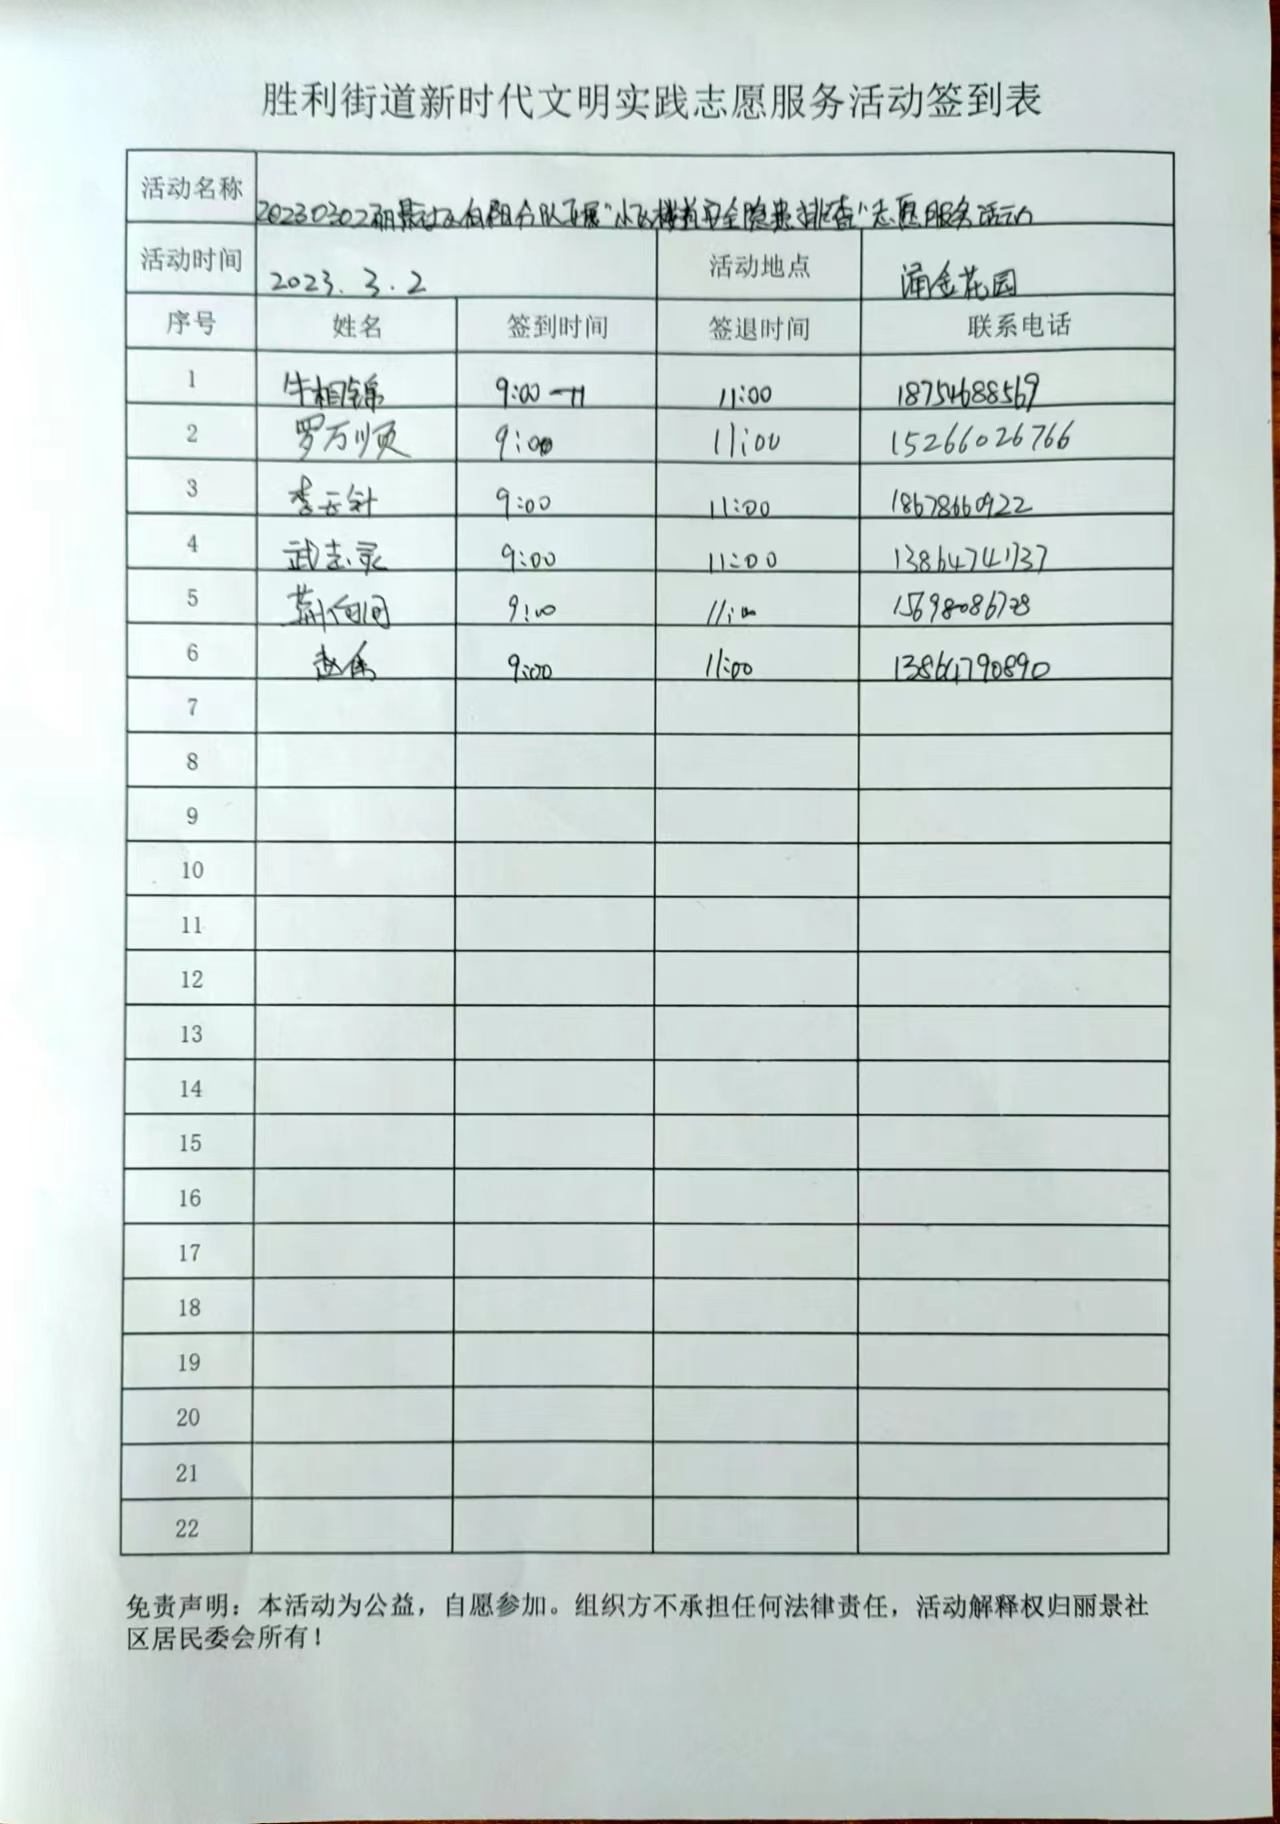 胜利街道新时代文明实践志愿服务活动签到表
活动名称 20230302丽景社区向阳分队开展"小区楼道安全隐患排查"志愿服务活动
活动时间 2023.3.2 活动地点 涌金花园
序号 姓名 签到时间 签退时间 联系电话
1 牛相锦 9:00 11:00 18754688569
2 罗万顺 9:00 11:00 15266026766
3 9:00 11:00 18678660922
4 武志录 9:00 11:00 13864741737
5 9:00 11:00
6 9:00 11:00 13864790890
7
8
9
10
11
12
13
14
15
16
17
18
19
20
21
22
免责声明：本活动为公益，自愿参加。组织方不承担任何法律责任，活动解释权归丽景社
区居民委会所有！